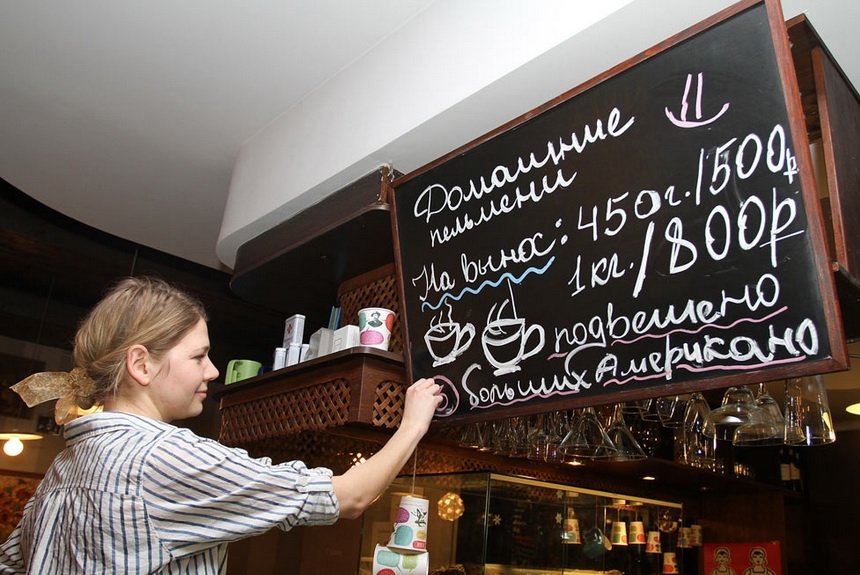 Домашние
пельмени
На вынос: 450г./500р
1кг./800р
подвешено
больших Американо